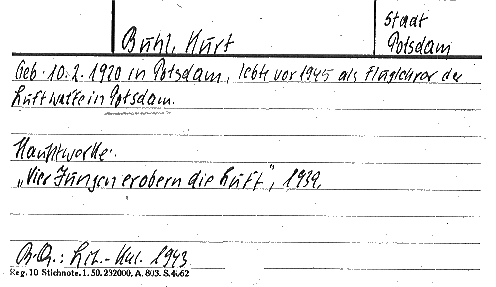 Buhl, Kurt
Stadt
Potsdam
Geb. 10.2.1920 in Potsdam, lebte vor 1945 als Fluglehrer der
Luftwaffe in Potsdam.
Hauptwerke:
„Vier Jungen erobern die Luft", 1939.
B.Q.: Lit.-Kal. 1943
Reg. 10 Stichnote. 1. 50. 232000. A. 803. S. 4. 62